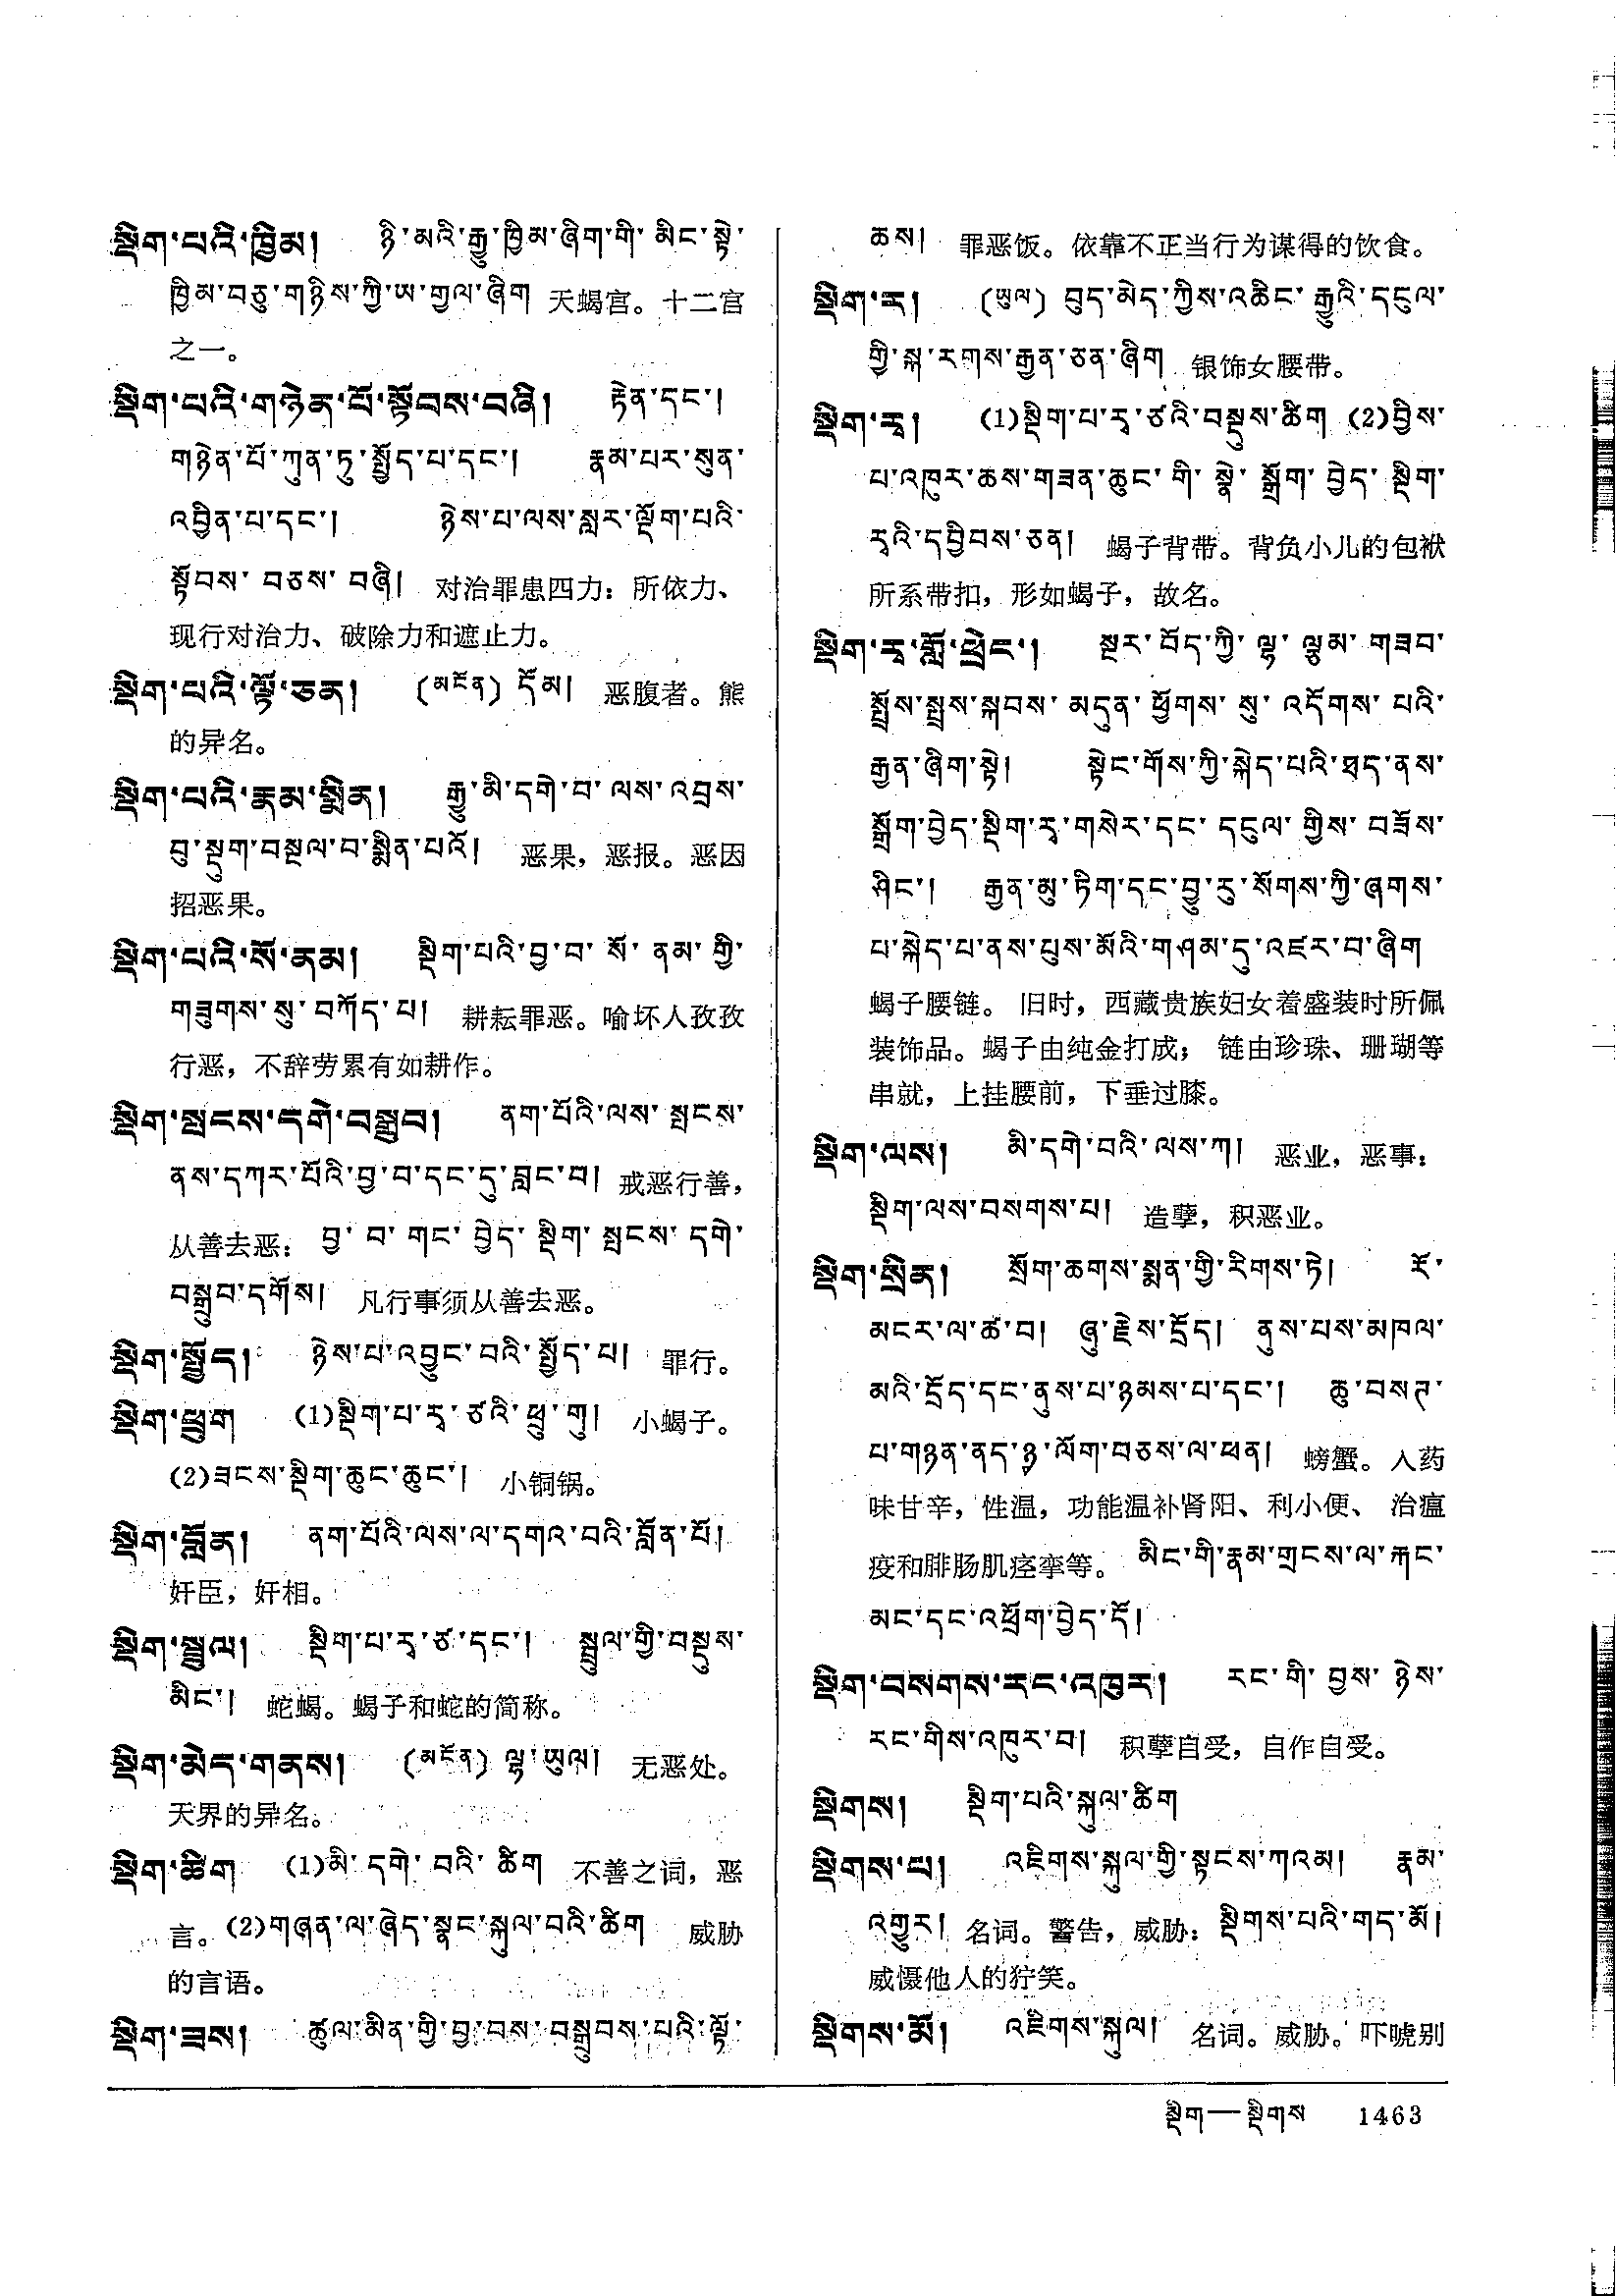 སྡིག་པའི་ཁྱིམ། ཉི་མའི་རྒྱུ་ཁྱིམ་ཞིག་གི་མིང་སྟེ་
ཁྱིམ་བཅུ་གཉིས་ཀྱི་ཡ་གྱལ་ཞིག 天蝎宫。十二宫
之一。
སྡིག་པའི་གཉེན་པོ་སྟོབས་བཞི། རྟེན་དང་།
གཉེན་པོ་ཀུན་ཏུ་སྤྱོད་པ་དང་། རྣམ་པར་སུན་
འབྱིན་པ་དང་། ཉེས་པ་ལས་སླར་ལྡོག་པའི་
སྟོབས་བཅས་བཞི། 对治罪患四力：所依力、
现行对治力、破除力和遮止力。
སྡིག་པའི་ལྟོ་ཅན། (མངོན) དོམ། 恶腹者。熊
的异名。
སྡིག་པའི་རྣམ་སྨིན། རྒྱུ་མི་དགེ་བ་ལས་འབྲས་
བུ་སྡུག་བསྔལ་བ་སྨིན་པའོ། 恶果，恶报。恶因
招恶果。
སྡིག་པའི་སོ་ནམ། སྡིག་པའི་བྱ་བ་སོ་ནམ་གྱི་
གཟུགས་སུ་བཀོད་པ། 耕耘罪恶。喻坏人孜孜
行恶，不辞劳累有如耕作。
སྡིག་སྤངས་དགེ་བསྒྲུབ། ནག་པོའི་ལས་སྤངས་
ནས་དཀར་པོའི་བྱ་བ་དང་དུ་བླང་བ། 戒恶行善，
从善去恶： བྱ་བ་གང་བྱེད་སྡིག་སྤངས་དགེ་
བསྒྲུབ་དགོས། 凡行事须从善去恶。
སྡིག་སྤྱོད། ཉེས་པ་འབྱུང་བའི་སྤྱོད་པ། 罪行。
སྡིག་ཕྲུག (1)སྡིག་པ་རྭ་ཙའི་ཕྲུ་གུ། 小蝎子。
(2)ཟངས་སྡིག་ཆུང་ཆུང་། 小铜锅。
སྡིག་བློན། ནག་པོའི་ལས་ལ་དགའ་བའི་བློན་པོ།
奸臣，奸相。
སྡིག་སྦྲུལ། སྡིག་པ་རྭ་ཙ་དང་། སྦྲུལ་གྱི་བསྡུས་
མིང་། 蛇蝎。蝎子和蛇的简称。
སྡིག་མེད་གནས། (མངོན) ལྷ་ཡུལ། 无恶处。
天界的异名。
སྡིག་ཚིག (1)མི་དགེ་བའི་ཚིག 不善之词，恶
言。(2)གཞན་ལ་ཞེད་སྣང་སྐུལ་བའི་ཚིག 威胁
的言语。
སྡིག་ཟས། ཚུལ་མིན་གྱི་བྱ་བས་བསྒྲུབས་པའི་ལྟོ་
ཆས། 罪恶饭。依靠不正当行为谋得的饮食。
སྡིག་ར། (ཡུལ) བུད་མེད་ཀྱིས་འཆིང་རྒྱུའི་དངུལ་
གྱི་སྐ་རགས་རྒྱན་ཅན་ཞིག 银饰女腰带。
སྡིག་རྭ། (1)སྡིག་པ་རྭ་ཙའི་བསྡུས་ཚིག (2)བྱིས་
པ་འཁུར་ཆས་གཟན་ཆུང་གི་སྣེ་སྒྲོག་བྱེད་སྡིག་
རྭའི་དབྱིབས་ཅན། 蝎子背带。背负小儿的包袱
所系带扣，形如蝎子，故名。
སྡིག་རྭ་གློ་ཕྲེང་། སྔར་བོད་ཀྱི་ལྷ་ལྕམ་གཟབ་
སྤྲོས་སྤྲས་སྐབས་མདུན་ཕྱོགས་སུ་འདོགས་པའི་
རྒྱན་ཞིག་སྟེ། སྟེང་གོས་ཀྱི་སྐེད་པའི་ཐད་ནས་
སྒྲོག་བྱེད་སྡིག་རྭ་གསེར་དང་དངུལ་གྱིས་བཟོས་
ཤིང་། རྒྱན་མུ་ཏིག་དང་བྱུ་རུ་སོགས་ཀྱི་ཞགས་
པ་སྐེད་པ་ནས་པུས་མོའི་གཤམ་དུ་འཛར་བ་ཞིག
蝎子腰链。旧时，西藏贵族妇女着盛装时所佩
装饰品。蝎子由纯金打成；链由珍珠、珊瑚等
串就，上挂腰前，下垂过膝。
སྡིག་ལས། མི་དགེ་བའི་ལས་ཀ། 恶业，恶事：
སྡིག་ལས་བསགས་པ། 造孽，积恶业。
སྡིག་སྲིན། སྲོག་ཆགས་སྨན་གྱི་རིགས་ཏེ། རོ་
མངར་ལ་ཚ་བ། ཞུ་རྗེས་དྲོད། ནུས་པས་མཁལ་
མའི་དྲོད་དང་ནུས་པ་ཉམས་པ་དང་། ཆུ་བསྲི་
པ་གཉན་ནད་ཉྭ་ལོག་བཅས་ལ་ཕན། 螃蟹。入药
味甘辛，性温，功能温补肾阳、利小便、治瘟
疫和腓肠肌痉挛等。 མིང་གི་རྣམ་གྲངས་ལ་རྐང་
མང་དང་འཕྲོག་བྱེད་དོ།
སྡིག་བསགས་རང་འཁུར། རང་གི་བྱས་ཉེས་
རང་གིས་འཁུར་བ། 积孽自受，自作自受。
སྡིགས། སྡིག་པའི་སྐུལ་ཚིག
སྡིགས་པ། འཇིགས་སྐུལ་གྱི་སྟངས་ཀའམ། རྣམ་
འགྱུར། 名词。警告，威胁： སྡིགས་པའི་གད་མོ།
威慑他人的狞笑。
སྡིགས་མོ། འཇིགས་སྐུལ། 名词。威胁。吓唬别
སྡིག—སྡིགས 1463